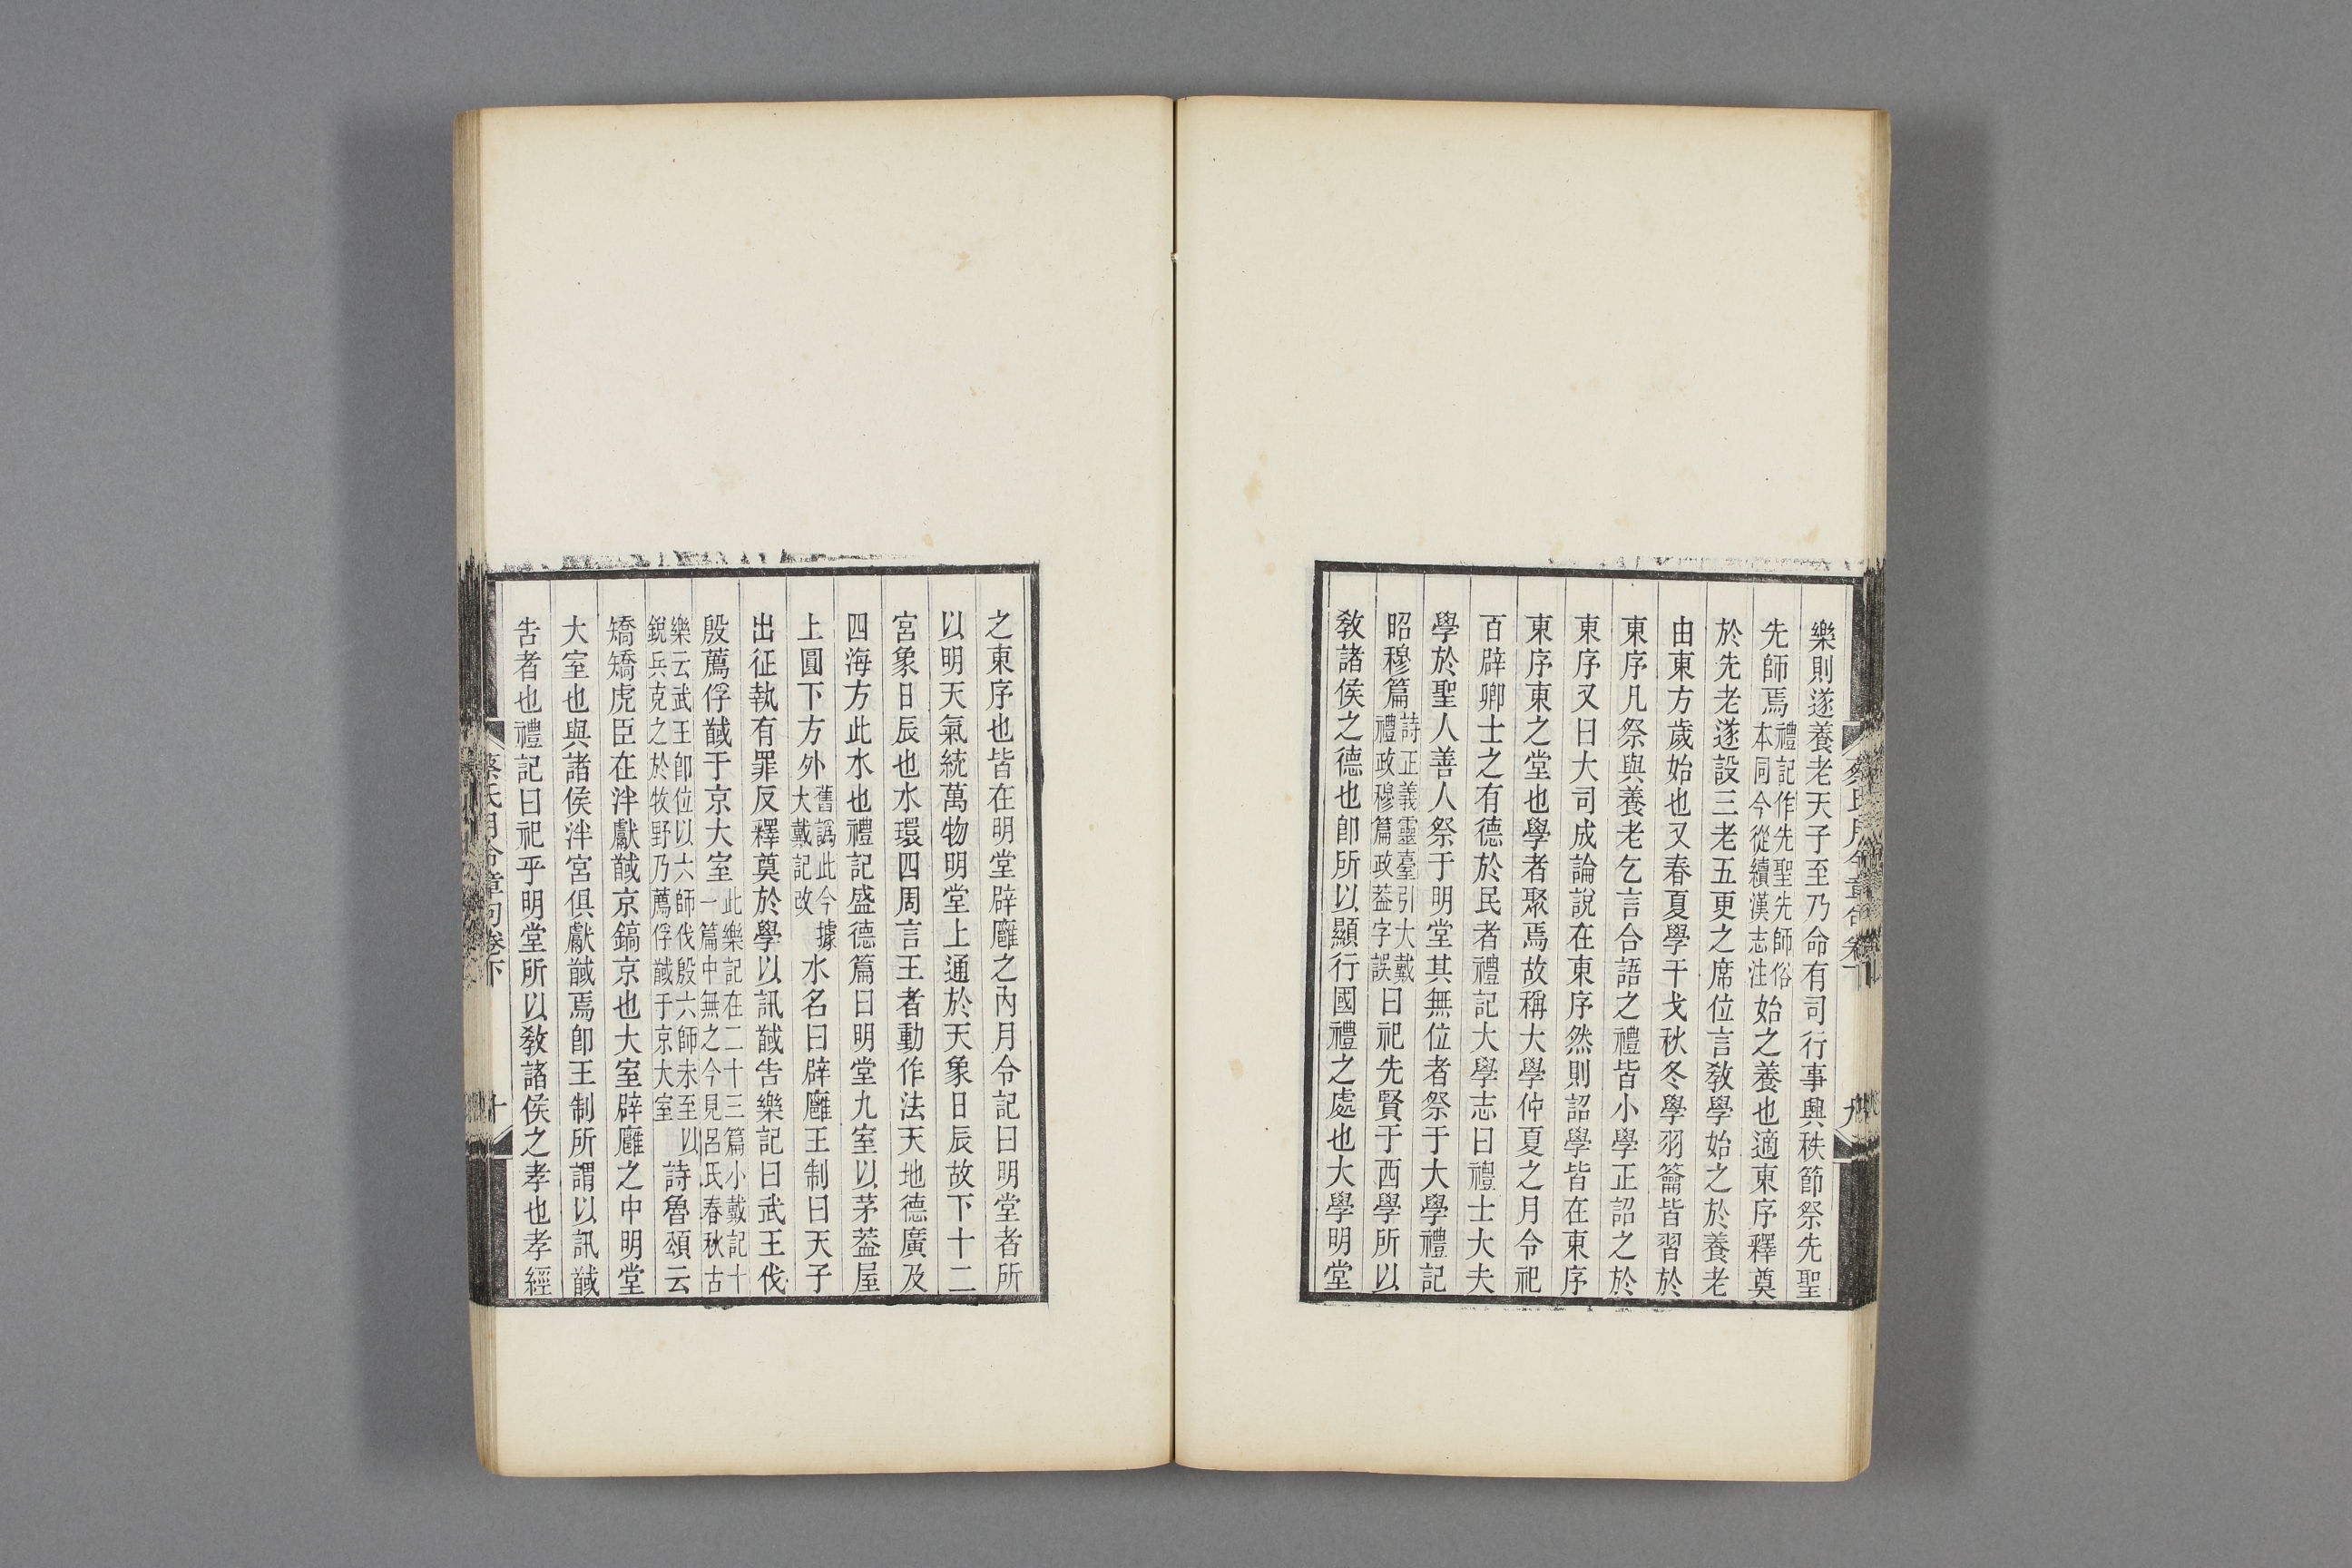 樂則遂養老天子至乃命有司行事興秩節祭先聖
先師焉禮記作先聖先師俗本同今從續漢志注始之養也適東序釋奠
於先老遂設三老五更之席位言敎學始之於養老
由東方歲始也又春夏學干戈秋冬學羽籥皆習於
東序凡祭與養老乞言合語之禮皆小學正詔之於
東序又曰大司成論說在東序然則詔學皆在東序
東序東之堂也學者聚焉故稱大學仲夏之月令祀
百辟卿士之有德於民者禮記大學志曰禮士大夫
學於聖人善人祭于明堂其無位者祭于大學禮記
昭穆篇詩正義靈臺引大戴禮政穆篇政葢字誤曰祀先賢于西學所以
敎諸侯之德也卽所以顯行國禮之處也大學明堂
蔡氏月令章句卷下 九
之東序也皆在明堂辟廱之內月令記曰明堂者所
以明天氣統萬物明堂上通於天象日辰故下十二
宮象日辰也水環四周言王者動作法天地德廣及
四海方此水也禮記盛德篇曰明堂九室以茅葢屋
上圓下方外舊譌此今據大戴記改水名曰辟廱王制曰天子
出征執有罪反釋奠於學以訊馘告樂記曰武王伐
殷薦俘馘于京大室此樂記在二十三篇小戴記十一篇中無之今見呂氏春秋古
樂云武王卽位以六師伐殷六師未至以銳兵克之於牧野乃薦俘馘于京大室詩魯頌云
矯矯虎臣在泮獻馘京鎬京也大室辟廱之中明堂
大室也與諸侯泮宮俱獻馘焉卽王制所謂以訊馘
告者也禮記曰祀乎明堂所以敎諸侯之孝也孝經
蔡氏月令章句卷下 十